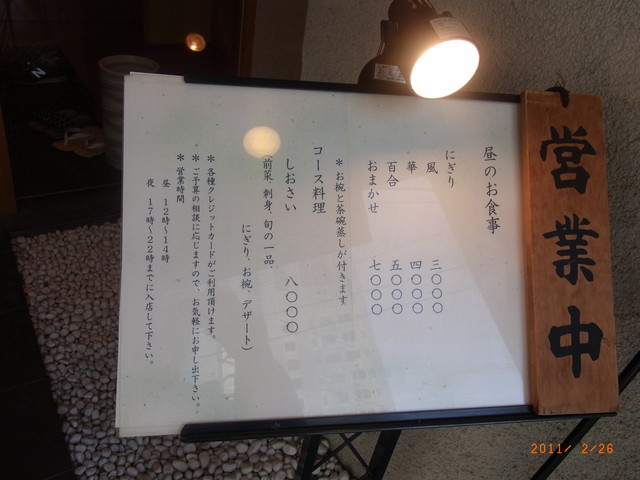 営業中
昼のお食事
にぎり
風 三〇〇〇
華 四〇〇〇
百合 五〇〇〇
おまかせ 七〇〇〇
＊お椀と茶碗蒸しが付きます
コース料理
しおさい 八〇〇〇
前菜、刺身、旬の一品、
にぎり、お椀、デザート)
＊各種クレジットカードがご利用頂けます。
＊ご予算の相談に応じますので、お気軽にお申し出下さい。
＊営業時間
昼 12時〜14時
夜 17時〜22時までに入店して下さい。
N
2011/ 2/26